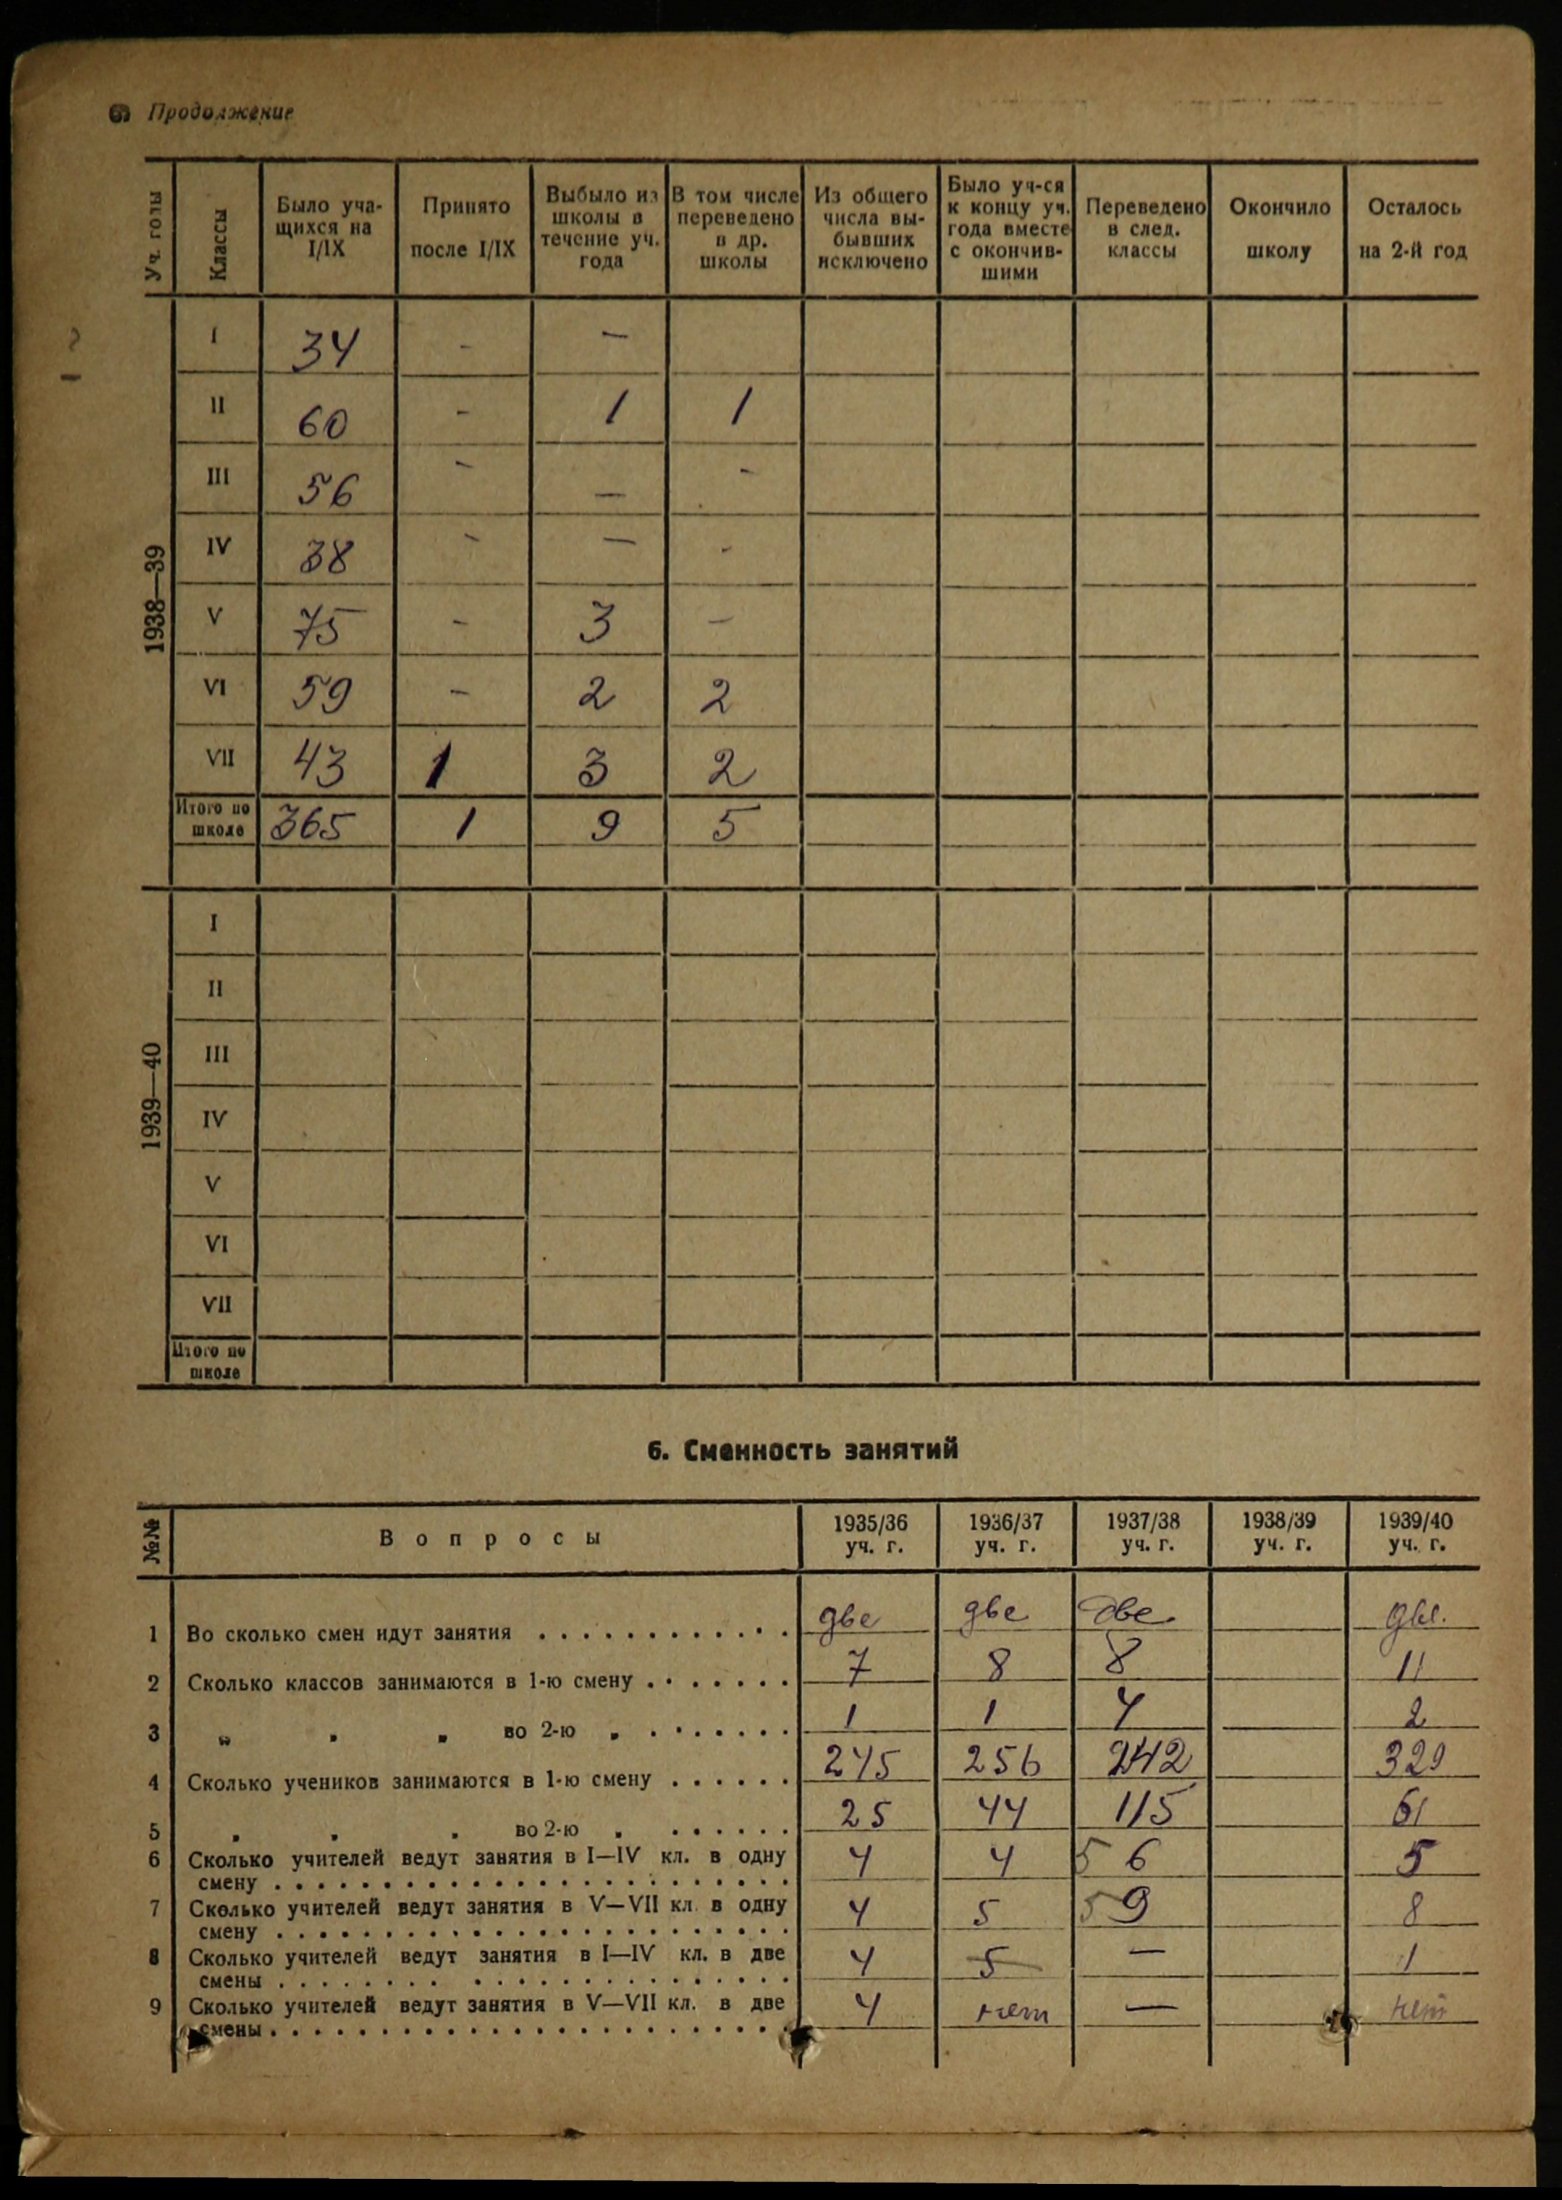 Продолжение
Уч. годы Классы Было уча- щихся на I/IX Принято после I/IX Выбыло из школы в течение уч. года В том числе переведено в др. школы Из общего числа вы- бывших исключено Было уч-ся к концу уч. года вместе с окончив- шими Переведено в след. классы Окончило школу Осталось на 2-й год
1938—39
I 34 - —
II 60 - 1 1
III 56 - — -
IV 38 - — -
V 75 - 3 —
VI 59 - 2 2
VII 43 1 3 2
Итого по школе 365 1 9 5
1939—40
I
II
III
IV
V
VI
VII
Итого по школе
6. Сменность занятий
№№ Вопросы 1935/36 уч. г. 1936/37 уч. г. 1937/38 уч. г. 1938/39 уч. г. 1939/40 уч. г.
1 Во сколько смен идут занятия . . . . . . . . . . . . две две две две.
2 Сколько классов занимаются в 1-ю смену . . . . . . . 7 8 8 11
3 „ „ „ во 2-ю „ . . . . . . . 1 1 4 2
4 Сколько учеников занимаются в 1-ю смену . . . . . . 245 256 242 329
5 „ „ „ во 2-ю „ . . . . . . 25 44 115 61
6 Сколько учителей ведут занятия в I—IV кл. в одну
смену . . . . . . . . . . . . . . . . . . . . . . 4 4 5 6 5
7 Сколько учителей ведут занятия в V—VII кл. в одну
смену . . . . . . . . . . . . . . . . . . . . . . 4 5 5 9 8
8 Сколько учителей ведут занятия в I—IV кл. в две
смены . . . . . . . . . . . . . . . . . . . . . . 4 5 — 1
9 Сколько учителей ведут занятия в V—VII кл. в две
смены . . . . . . . . . . . . . . . . . . . . . . 4 нет — нет